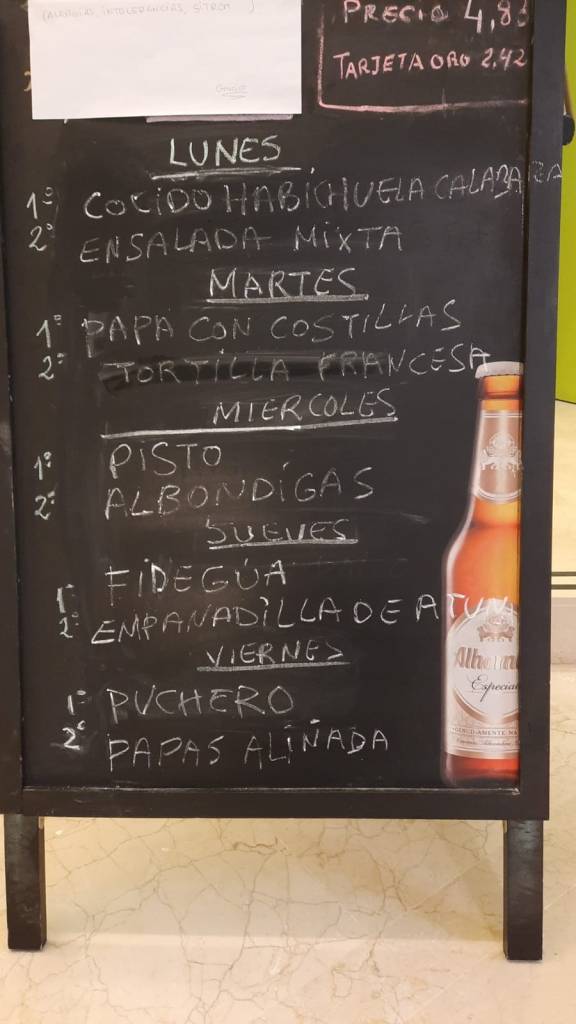 (ALERGIAS, INTOLERANCIAS, SITROM )
PRECIO 4,83
TARJETA ORO 2,42
LUNES
1º COCIDO HABICHUELA CALABAZA
2º ENSALADA MIXTA
MARTES
1º PAPA CON COSTILLAS
2º TORTILLA FRANCESA
MIERCOLES
1º PISTO
2º ALBONDIGAS
JUEVES
1º FIDEGÚA
2º EMPANADILLA DE ATUN
VIERNES
1º PUCHERO
2º PAPAS ALIÑADA
Especial